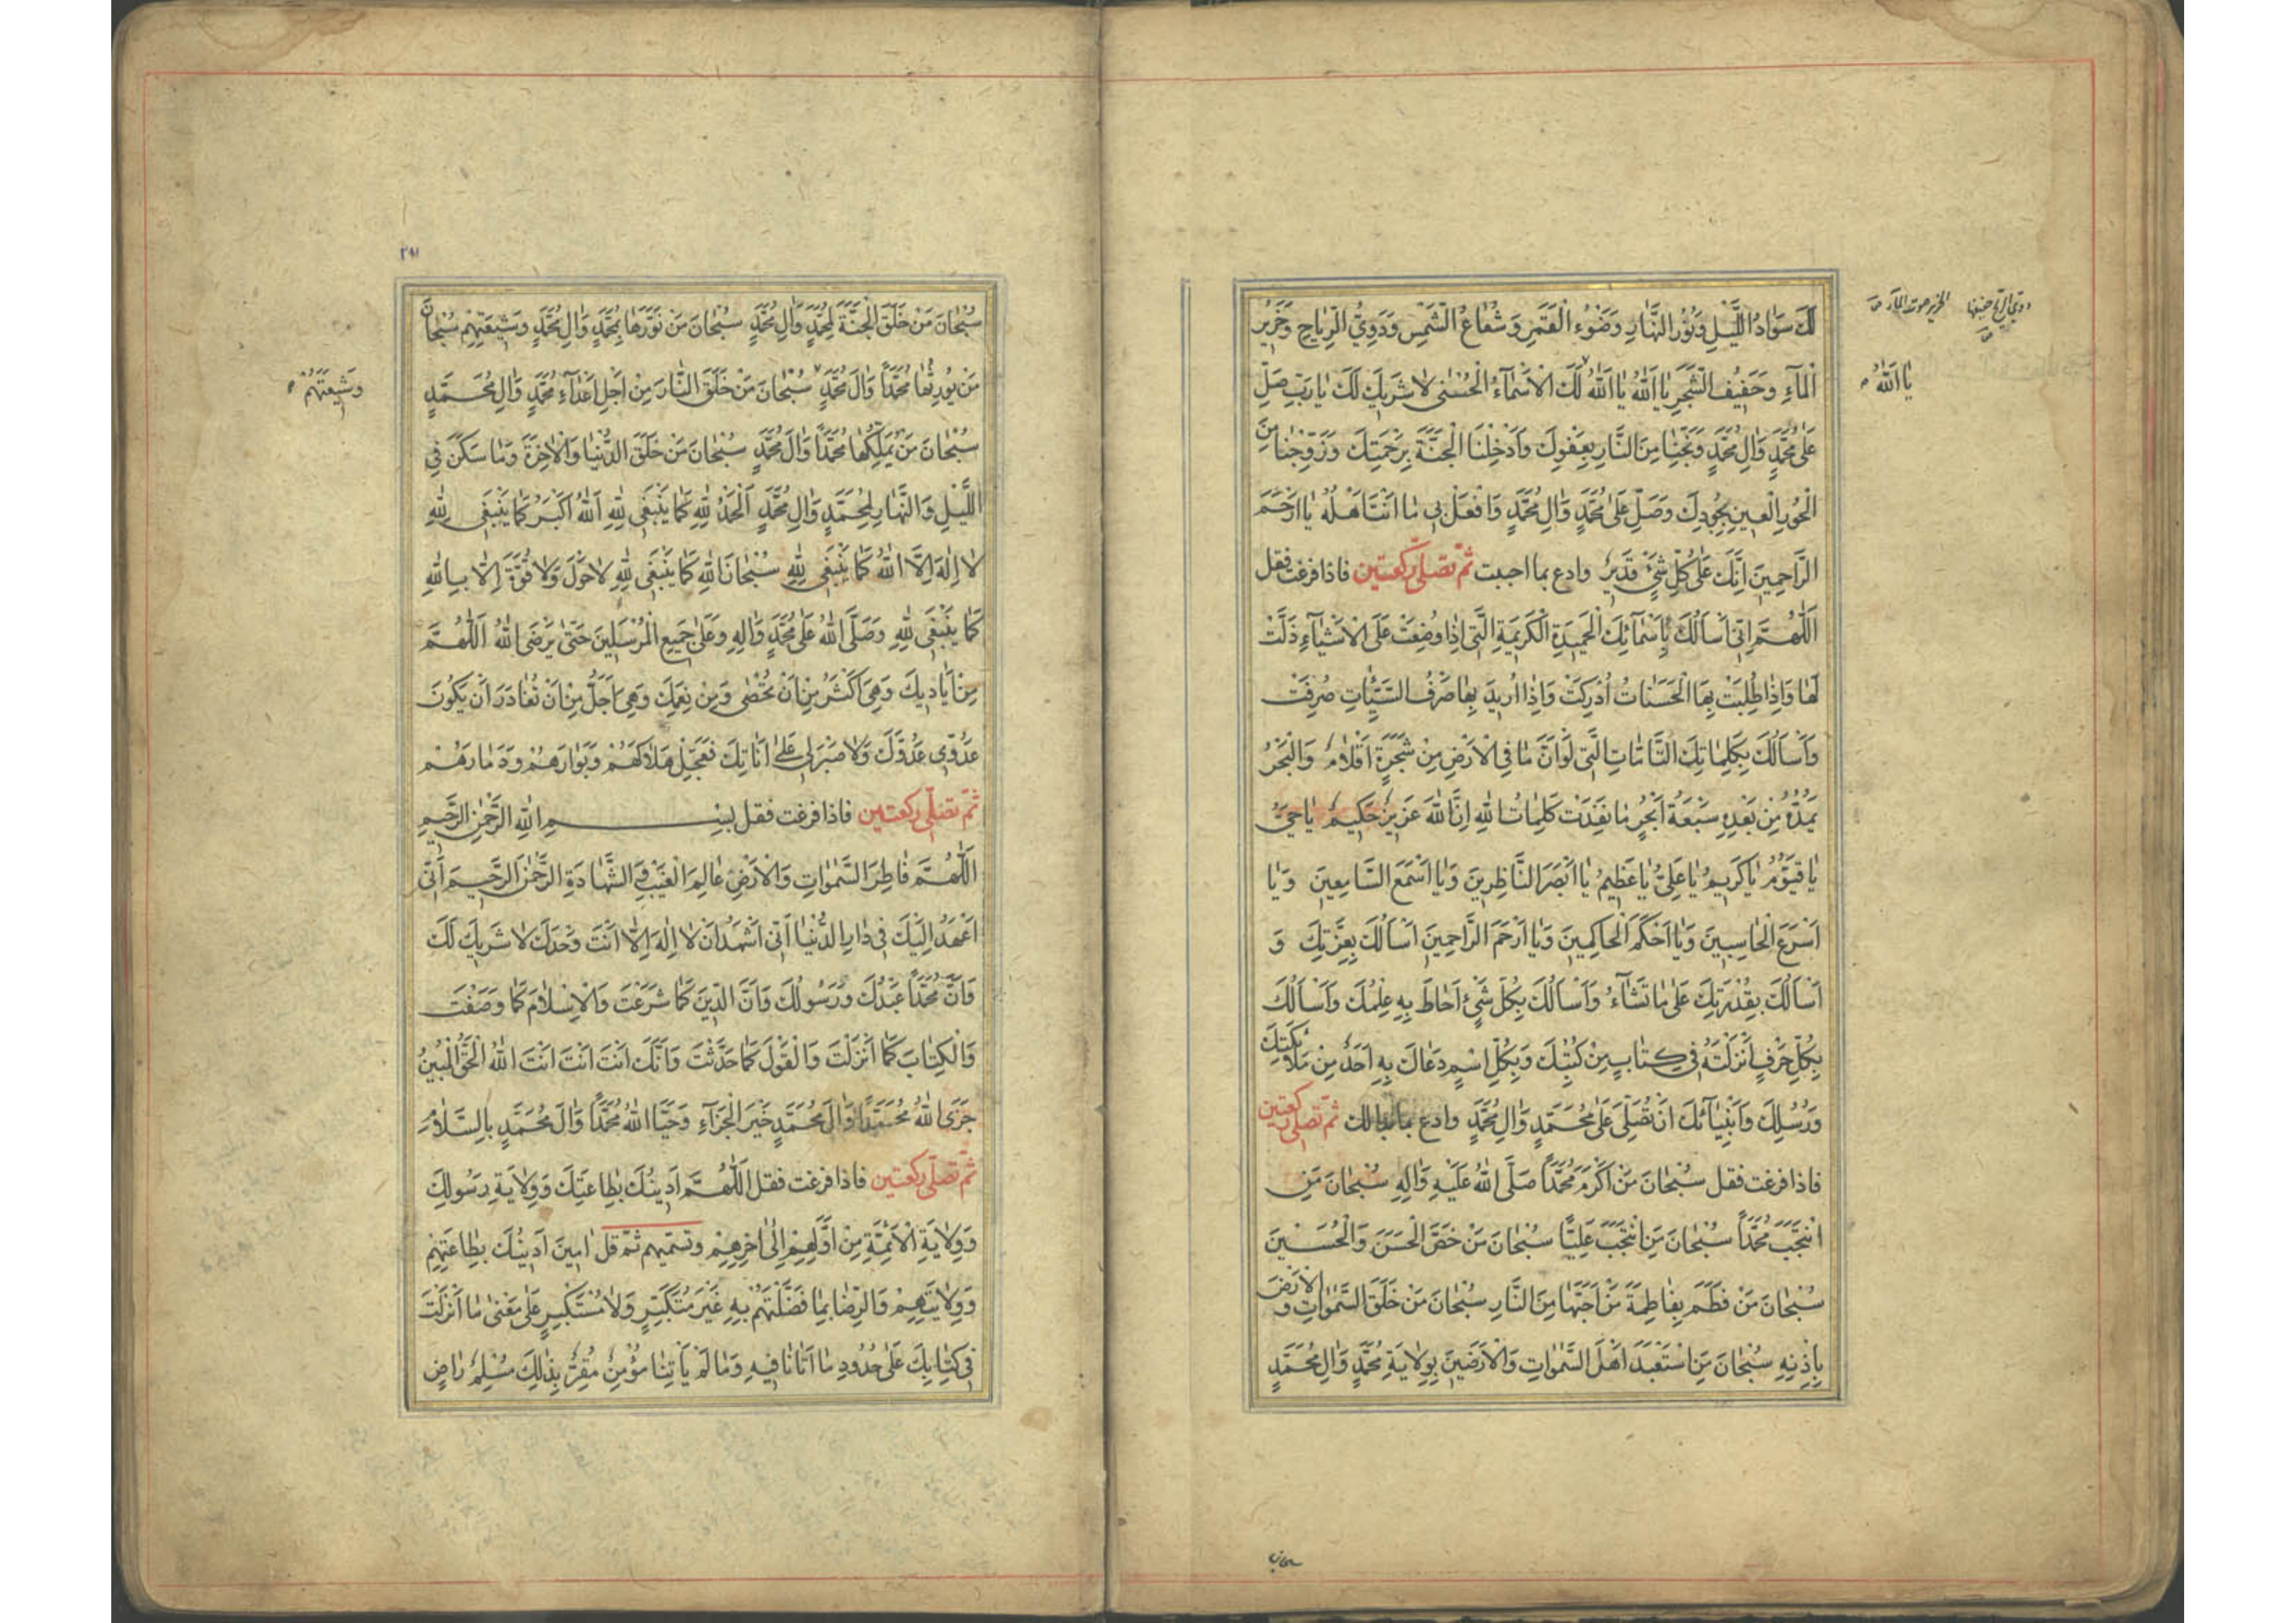 لَكَ سَوَادُ اللَّيْلِ وَنُورُ النَّهَارِ وَضَوْءُ الْقَمَرِ وَشُعَاعُ الشَّمْسِ وَدَوِيُّ الرِّيَاحِ وَخَرِيرُ
الْمَآءِ وَحَفِيفُ الشَّجَرِ يَا اَللّٰهُ يَا اَللّٰهُ لَكَ الْاَسْمَآءُ الْحُسْنٰى لَا شَرِيكَ لَكَ يَا رَبِّ صَلِّ
عَلٰى مُحَمَّدٍ وَاٰلِ مُحَمَّدٍ وَنَجِّنَا مِنَ النَّارِ بِعَفْوِكَ وَاَدْخِلْنَا الْجَنَّةَ بِرَحْمَتِكَ وَزَوِّجْنَا مِنَ
الْحُورِ الْعِينِ بِجُودِكَ وَصَلِّ عَلٰى مُحَمَّدٍ وَاٰلِ مُحَمَّدٍ وَافْعَلْ بِي مَا اَنْتَ اَهْلُهُ يَا اَرْحَمَ
الرَّاحِمِينَ اِنَّكَ عَلٰى كُلِّ شَيْءٍ قَدِيرٌ وادع بما احببت ثمّ تصلّي ركعتين فاذا فرغت فقل
اَللّٰهُمَّ اِنِّي اَسْاَلُكَ بِاَسْمَآئِكَ الْحَمِيدَةِ الْكَرِيمَةِ الَّتِي اِذَا وُضِعَتْ عَلَى الْاَشْيَآءِ ذَلَّتْ
لَهَا وَاِذَا طُلِبَتْ بِهَا الْحَسَنَاتُ اُدْرِكَتْ وَاِذَا اُرِيدَ بِهَا صَرْفُ السَّيِّئَاتِ صُرِفَتْ
وَاَسْاَلُكَ بِكَلِمَاتِكَ التَّامَّاتِ الَّتِي لَوْ اَنَّ مَا فِي الْاَرْضِ مِنْ شَجَرَةٍ اَقْلَامٌ وَالْبَحْرُ
يَمُدُّهُ مِنْ بَعْدِهِ سَبْعَةُ اَبْحُرٍ مَا نَفِدَتْ كَلِمَاتُ اللّٰهِ اِنَّ اللّٰهَ عَزِيزٌ حَكِيمٌ يَا حَيُّ
يَا قَيُّومُ يَا كَرِيمُ يَا عَلِيُّ يَا عَظِيمُ يَا اَبْصَرَ النَّاظِرِينَ وَيَا اَسْمَعَ السَّامِعِينَ وَيَا
اَسْرَعَ الْحَاسِبِينَ وَيَا اَحْكَمَ الْحَاكِمِينَ وَيَا اَرْحَمَ الرَّاحِمِينَ اَسْاَلُكَ بِعِزَّتِكَ وَ
اَسْاَلُكَ بِقُدْرَتِكَ عَلٰى مَا تَشَآءُ وَاَسْاَلُكَ بِكُلِّ شَيْءٍ اَحَاطَ بِهِ عِلْمُكَ وَاَسْاَلُكَ
بِكُلِّ حَرْفٍ اَنْزَلْتَهُ فِي كِتَابٍ مِنْ كُتُبِكَ وَبِكُلِّ اسْمٍ دَعَاكَ بِهِ اَحَدٌ مِنْ مَلَائِكَتِكَ
وَرُسُلِكَ وَاَنْبِيَآئِكَ اَنْ تُصَلِّيَ عَلٰى مُحَمَّدٍ وَاٰلِ مُحَمَّدٍ وادع بما بدا لك ثمّ تصلّي ركعتين
فاذا فرغت فقل سُبْحَانَ مَنْ اَكْرَمَ مُحَمَّداً صَلَّى اللّٰهُ عَلَيْهِ وَاٰلِهِ سُبْحَانَ مَنِ
انْتَجَبَ مُحَمَّداً سُبْحَانَ مَنِ انْتَجَبَ عَلِيًّا سُبْحَانَ مَنْ خَصَّ الْحَسَنَ وَالْحُسَيْنَ
سُبْحَانَ مَنْ فَطَمَ بِفَاطِمَةَ مَنْ اَحَبَّهَا مِنَ النَّارِ سُبْحَانَ مَنْ خَلَقَ السَّمٰوَاتِ وَالْاَرْضَ
بِاِذْنِهِ سُبْحَانَ مَنِ اسْتَعْبَدَ اَهْلَ السَّمٰوَاتِ وَالْاَرَضِينَ بِوِلَايَةِ مُحَمَّدٍ وَاٰلِ مُحَمَّدٍ
الخرير صوت المآء
يَا اَللّٰهُ
سبحان
٢٩١
سُبْحَانَ مَنْ خَلَقَ الْجَنَّةَ لِمُحَمَّدٍ وَاٰلِ مُحَمَّدٍ سُبْحَانَ مَنْ نَوَّرَهَا بِمُحَمَّدٍ وَاٰلِ مُحَمَّدٍ وَشِيعَتِهِمْ سُبْحَانَ
مَنْ يُورِثُهَا مُحَمَّداً وَاٰلَ مُحَمَّدٍ سُبْحَانَ مَنْ خَلَقَ النَّارَ مِنْ اَجْلِ اَعْدَآءِ مُحَمَّدٍ وَاٰلِ مُحَمَّدٍ
سُبْحَانَ مَنْ يُمَلِّكُهَا مُحَمَّداً وَاٰلَ مُحَمَّدٍ سُبْحَانَ مَنْ خَلَقَ الدُّنْيَا وَالْاٰخِرَةَ وَمَا سَكَنَ فِي
اللَّيْلِ وَالنَّهَارِ لِمُحَمَّدٍ وَاٰلِ مُحَمَّدٍ اَلْحَمْدُ لِلّٰهِ كَمَا يَنْبَغِي لِلّٰهِ اَللّٰهُ اَكْبَرُ كَمَا يَنْبَغِي لِلّٰهِ
لَا اِلٰهَ اِلَّا اللّٰهُ كَمَا يَنْبَغِي لِلّٰهِ سُبْحَانَ اللّٰهِ كَمَا يَنْبَغِي لِلّٰهِ لَا حَوْلَ وَلَا قُوَّةَ اِلَّا بِاللّٰهِ
كَمَا يَنْبَغِي لِلّٰهِ وَصَلَّى اللّٰهُ عَلٰى مُحَمَّدٍ وَاٰلِهِ وَعَلٰى جَمِيعِ الْمُرْسَلِينَ حَتّٰى يَرْضَى اللّٰهُ اَللّٰهُمَّ
مِنْ اَيَادِيكَ وَهِيَ اَكْثَرُ مِنْ اَنْ تُحْصٰى وَمِنْ نِعَمِكَ وَهِيَ اَجَلُّ مِنْ اَنْ تُغَادَرَ اَنْ يَكُونَ
عَدُوِّي عَدُوَّكَ وَلَا صَبْرَ لِي عَلٰى اَنَاتِكَ فَعَجِّلْ هَلَاكَهُمْ وَبَوَارَهُمْ وَدَمَارَهُمْ
ثمّ تصلّي ركعتين فاذا فرغت فقل بِسْمِ اللّٰهِ الرَّحْمٰنِ الرَّحِيمِ
اَللّٰهُمَّ فَاطِرَ السَّمٰوَاتِ وَالْاَرْضِ عَالِمَ الْغَيْبِ وَالشَّهَادَةِ الرَّحْمٰنَ الرَّحِيمَ اَنِّي
اَعْهَدُ اِلَيْكَ فِي دَارِ الدُّنْيَا اَنِّي اَشْهَدُ اَنْ لَا اِلٰهَ اِلَّا اَنْتَ وَحْدَكَ لَا شَرِيكَ لَكَ
وَاَنَّ مُحَمَّداً عَبْدُكَ وَرَسُولُكَ وَاَنَّ الدِّينَ كَمَا شَرَعْتَ وَالْاِسْلَامَ كَمَا وَصَفْتَ
وَالْكِتَابَ كَمَا اَنْزَلْتَ وَالْقَوْلَ كَمَا حَدَّثْتَ وَاَنَّكَ اَنْتَ اَنْتَ اَنْتَ اللّٰهُ الْحَقُّ الْمُبِينُ
جَزَى اللّٰهُ مُحَمَّداً وَاٰلَ مُحَمَّدٍ خَيْرَ الْجَزَآءِ وَحَيَّا اللّٰهُ مُحَمَّداً وَاٰلَ مُحَمَّدٍ بِالسَّلَامِ
ثمّ تصلّي ركعتين فاذا فرغت فقل اَللّٰهُمَّ اَدِينُكَ بِطَاعَتِكَ وَوِلَايَةِ رَسُولِكَ
وَوِلَايَةِ الْاَئِمَّةِ مِنْ اَوَّلِهِمْ اِلٰى اٰخِرِهِمْ وتسمّيهم ثمّ قل اٰمِينَ اَدِينُكَ بِطَاعَتِهِمْ
وَوِلَايَتِهِمْ وَالرِّضَا بِمَا فَضَّلْتَهُمْ بِهِ غَيْرَ مُتَكَبِّرٍ وَلَا مُسْتَكْبِرٍ عَلٰى مَعْنٰى مَا اَنْزَلْتَ
فِي كِتَابِكَ عَلٰى حُدُودِ مَا اَتَانَا فِيهِ وَمَا لَمْ يَاْتِنَا مُؤْمِنٌ مُقِرٌّ بِذٰلِكَ مُسْلِمٌ رَاضٍ
وَشِيعَتَهُمْ